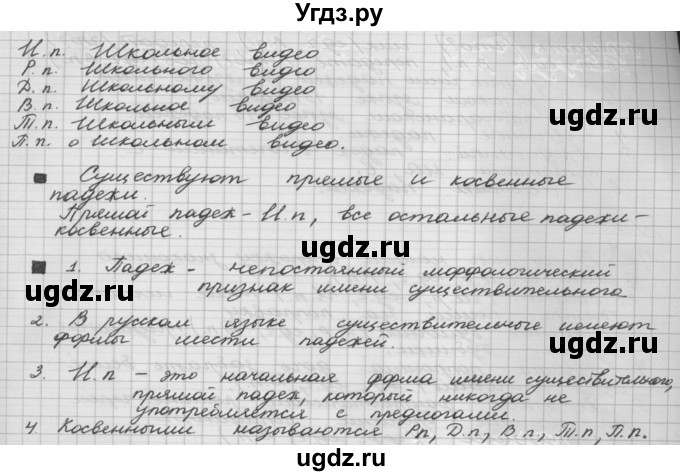 Угдз.ру
И.п. Школьное видео
Р.п. Школьного видео
Д.п. Школьному видео
В.п. Школьное видео
Т.п. Школьным видео
П.п. о школьном видео.
ugdz.ru ugdz.ru
Существуют прямые и косвенные
падежи.
Прямой падеж - И.п, все остальные падежи -
косвенные.
ugdz.ru ugdz.ru
1. Падеж - непостоянный морфологический
признак имени существительного
ugdz.ru
2. В русском языке существительные имеют
формы шести падежей.
ugdz.ru ugdz.ru
3. И.п - это начальная форма имени существительного,
прямой падеж, который никогда не
употребляется с предлогами.
4 Косвенными называются Рп, Д.п, В.п, Т.п, П.п.
ugdz.ru ugdz.ru